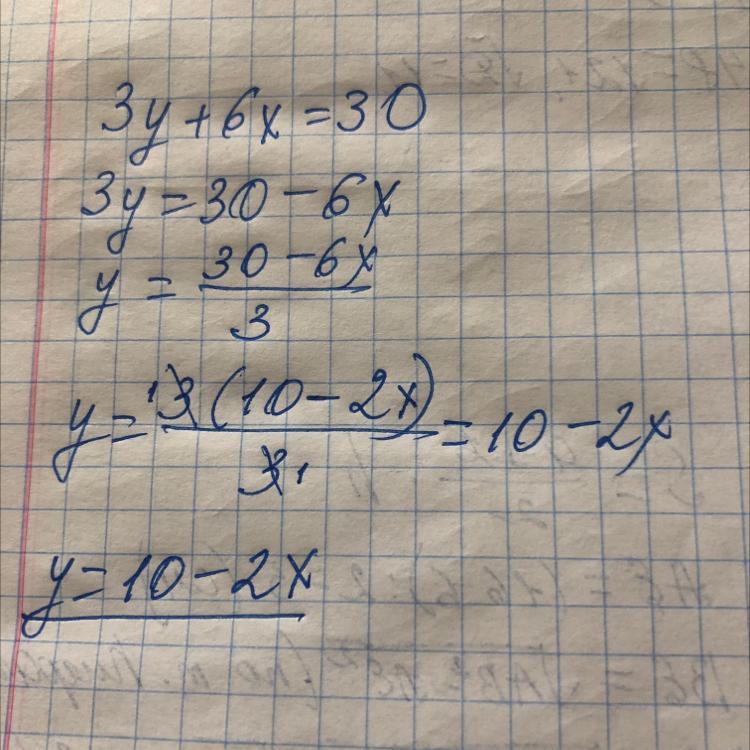 3y + 6x = 30
3y = 30 - 6x
y = (30 - 6x) / 3
y = 3(10 - 2x) / 3 = 10 - 2x
y = 10 - 2x